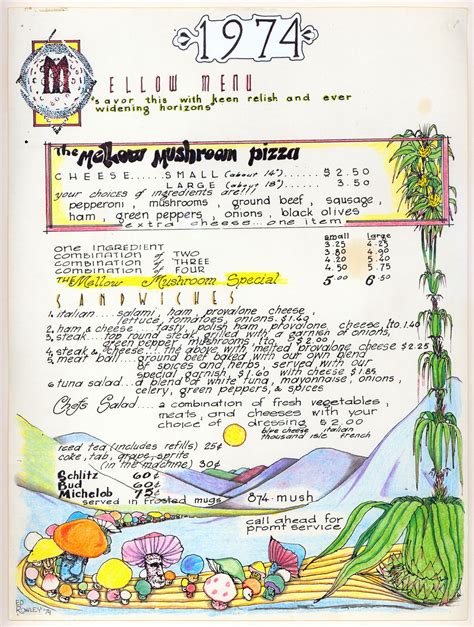 1974
MELLOW MENU
"savor this with keen relish and ever
widening horizons"
The Mellow Mushroom pizza
CHEESE.....SMALL (about 14")......$2.50
LARGE (about 18").....3.50
your choices of ingredients are!!!
pepperoni, mushrooms, ground beef, sausage,
ham, green peppers, onions, black olives
extra cheese...one item
small large
one ingredient 3.25 4.25
combination of TWO 3.80 4.90
combination of THREE 4.20
combination of FOUR 4.50 5.75
THE Mellow Mushroom Special 5.00 6.50
SANDWICHES
1. italian.....salami, ham, provalone cheese,
lettuce, tomatoes, onions. $1.40
2. ham & cheese...tasty polish ham, provalone cheese, lto. 1.40
3. steak....top round steak grilled with a garnish of onions,
green pepper, mushrooms, lto. $2.00
4. steak & cheese...the above with melted provalone cheese $2.25
5. meat ball.....ground beef baked with our own blend
of spices and herbs, served with our
special garnish, $1.60 with cheese $1.85
6. tuna salad...a blend of white tuna, mayonnaise, onions,
celery, green peppers, & spices
Chefs Salad.... a combination of fresh vegetables,
meats, and cheeses with your
choice of dressing $2.00
blue cheese italian
thousand isle french
iced tea (includes refills) 25¢
coke, tab, grape, sprite
(in the machine) 30¢
Schlitz 60¢
Bud 60¢
Michelob 75¢
served in frosted mugs
874-mush
call ahead for
promt service
ED
ROWLEY 74